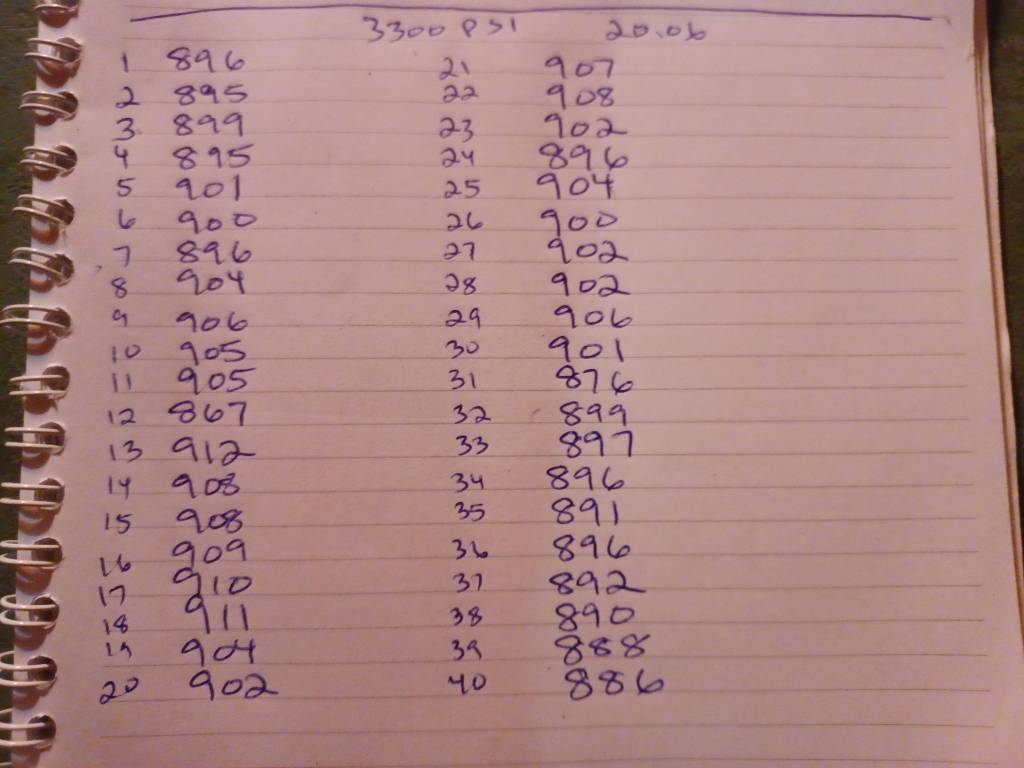 3300 PSI 20.06
1 896 21 907
2 895 22 908
3 899 23 902
4 895 24 896
5 901 25 904
6 900 26 900
7 896 27 902
8 904 28 902
9 906 29 906
10 905 30 901
11 905 31 876
12 867 32 899
13 912 33 897
14 908 34 896
15 908 35 891
16 909 36 896
17 910 37 892
18 911 38 890
19 904 39 888
20 902 40 886